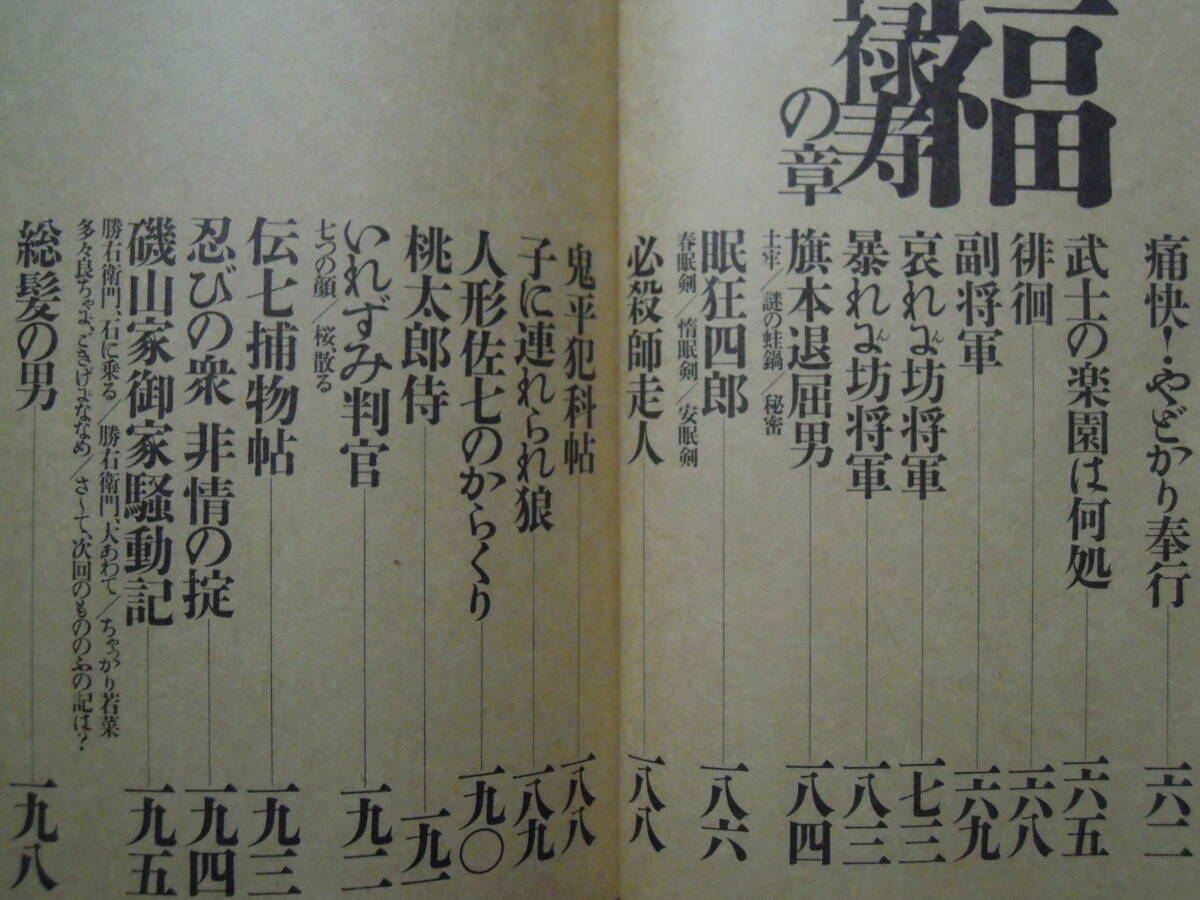 福
禄寿
の章
痛快!・やどかり奉行 一六二
武士の楽園は何処 一六五
徘徊 一六八
副将軍 一六九
哀れん坊将軍 一七三
暴れん坊将軍 一八三
旗本退屈男 一八四
土牢/謎の蛙鍋/秘密
眠狂四郎 一八六
春眠剣/惰眠剣/安眠剣
必殺師走人 一八八
鬼平犯科帖 一八八
子に連れられ狼 一八九
人形佐七のからくり 一九〇
桃太郎侍 一九一
いれずみ判官 一九二
七つの顔/桜散る
伝七捕物帖 一九三
忍びの衆 非情の掟 一九四
磯山家御家騒動記 一九五
勝右衛門、石に乗る/勝右衛門、大あわて/ちゃっかり若菜
多々良ちゃま、ごきげんななめ/さ〜て、次回のもののふの記は?
総髪の男 一九八